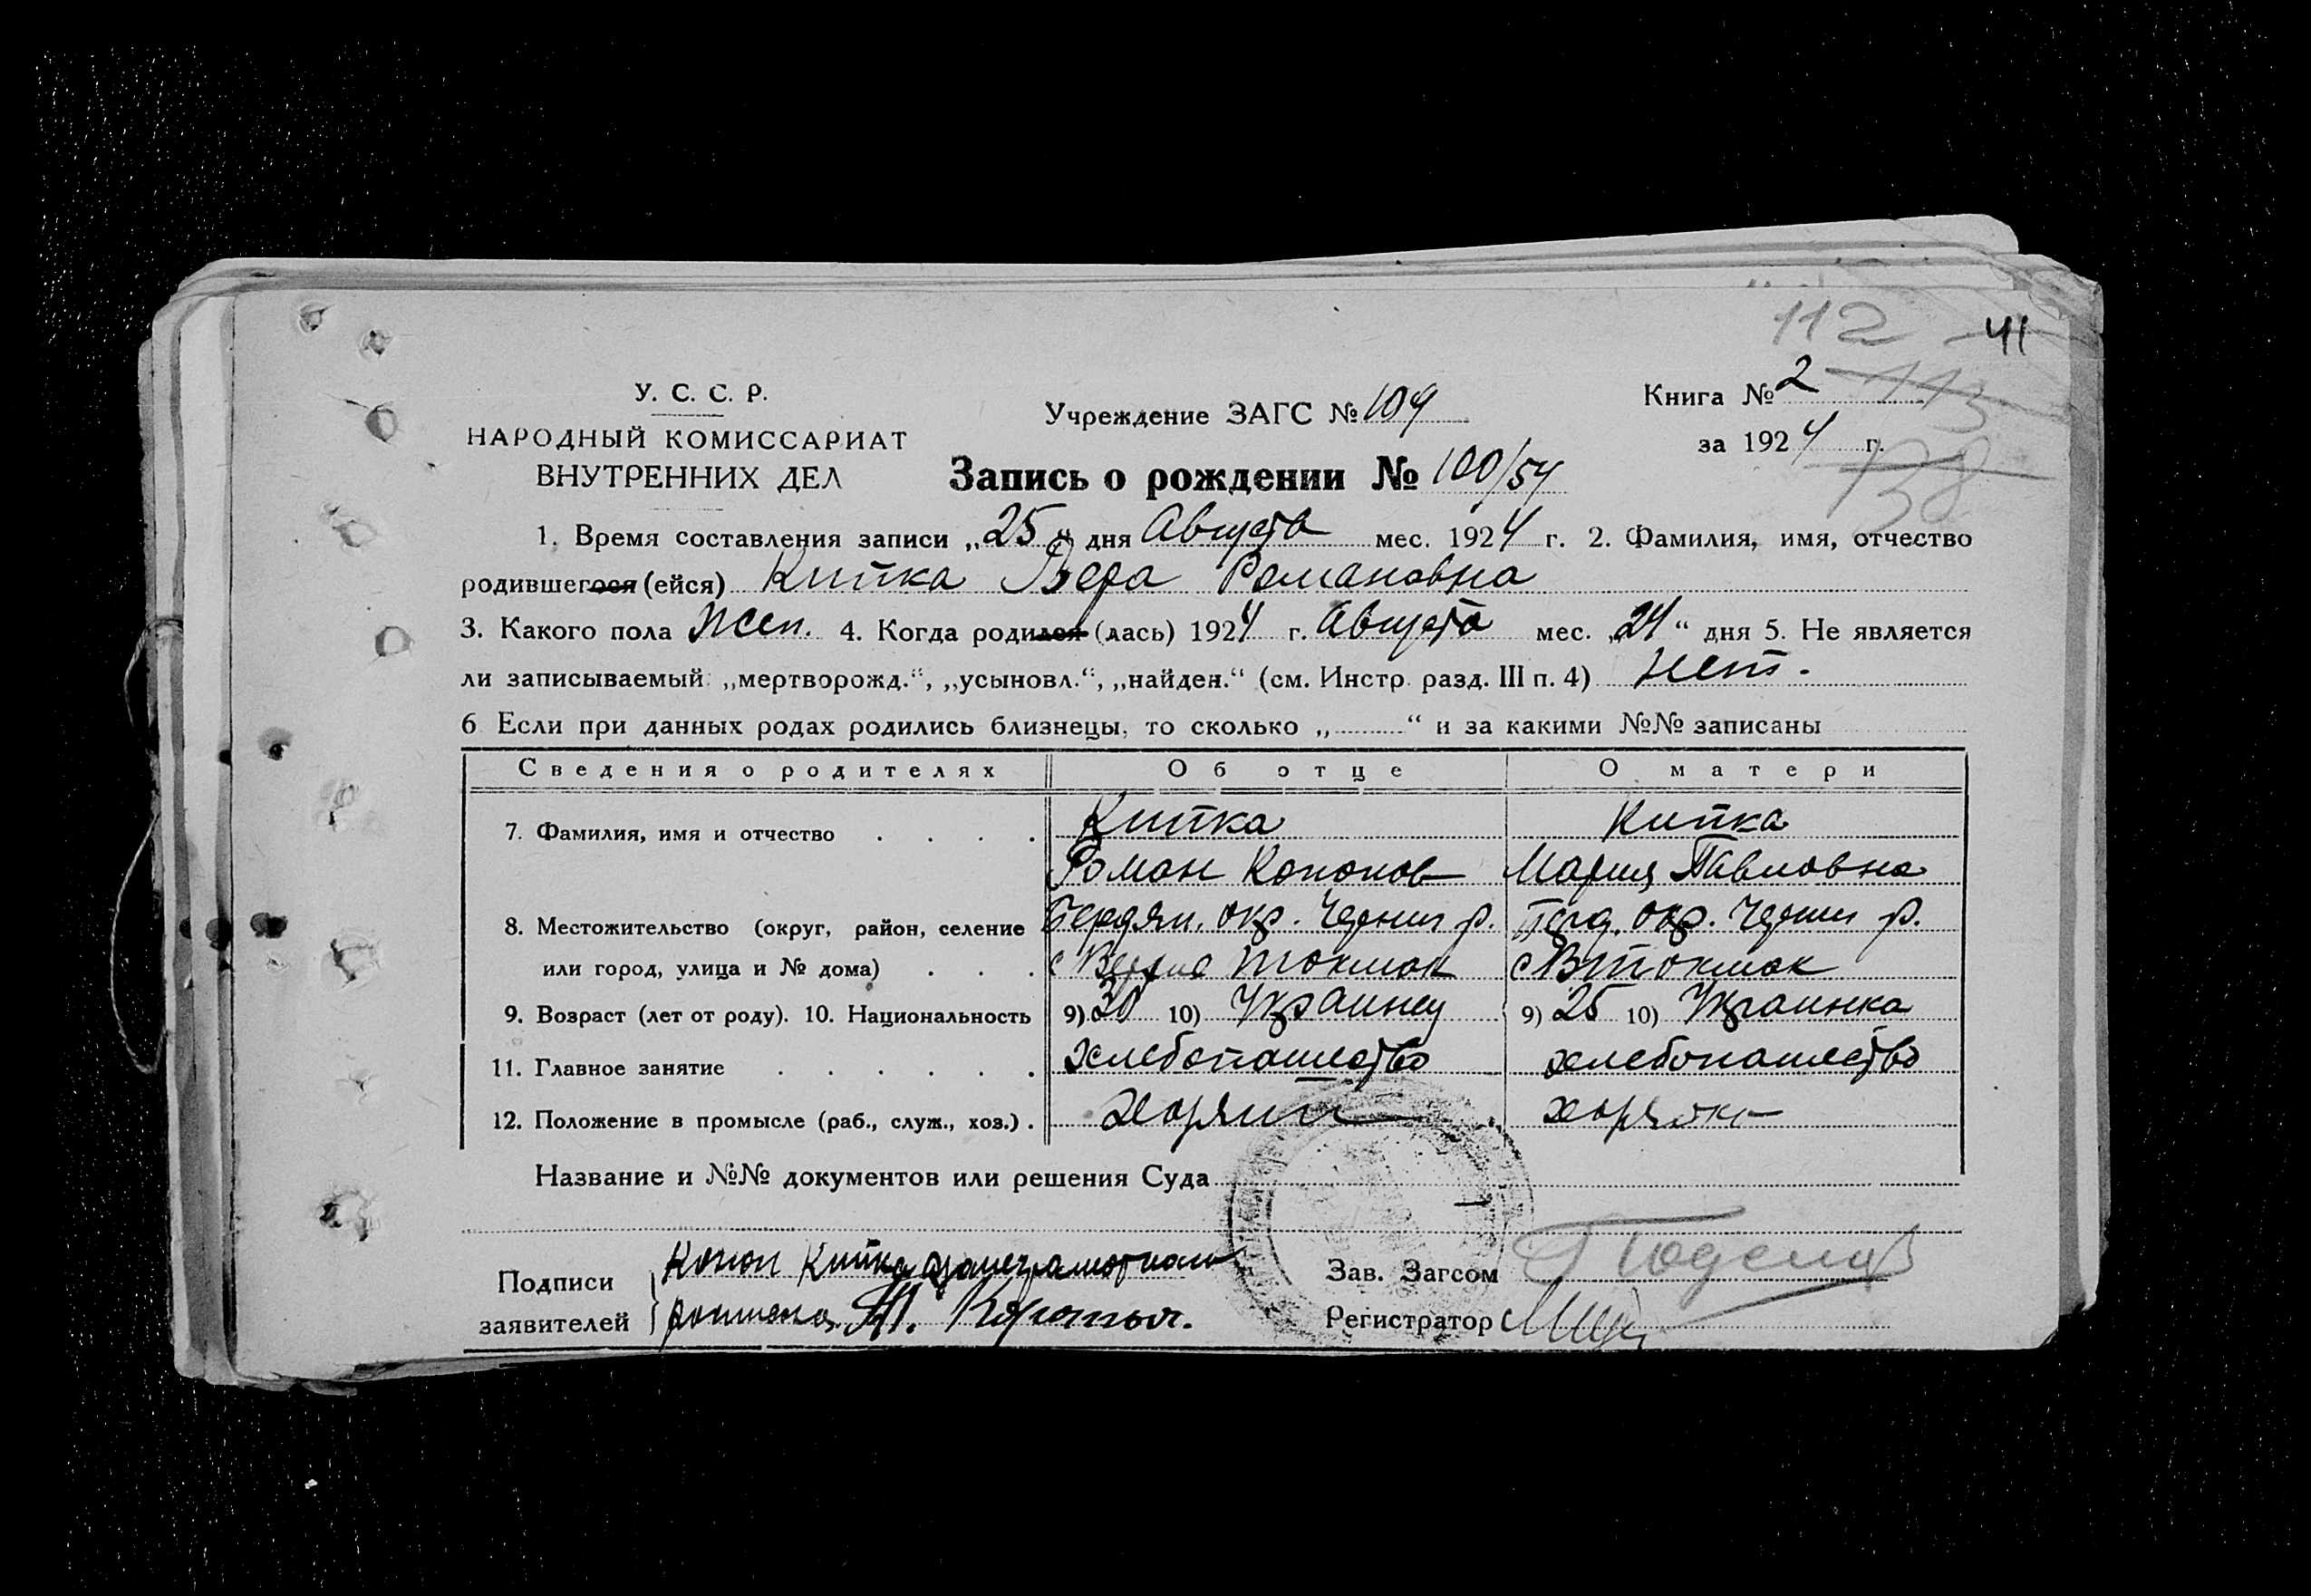 112 41
У. С. С. Р.
НАРОДНЫЙ КОМИССАРИАТ
ВНУТРЕННИХ ДЕЛ
Учреждение ЗАГС № 109
Книга № 2
113
за 1924 г.
138
Запись о рождении № 100/54
1. Время составления записи „25“ дня Августа мес. 1924 г. 2. Фамилия, имя, отчество
родившегося (ейся) Кипка Вера Романовна
3. Какого пола жен. 4. Когда родился (лась) 1924 г. Августа мес. „24“ дня 5. Не является
ли записываемый „мертворожд.“, „усыновл.“, „найден.“ (см. Инстр. разд. III п. 4) нет.
6 Если при данных родах родились близнецы, то сколько „ “ и за какими №№ записаны
Сведения о родителях Об отце О матери
7. Фамилия, имя и отчество Кипка Кипка
Роман Кононов Мария Павловна
8. Местожительство (округ, район, селение Бердян. окр. Черниг р. Берд. окр. Черниг р.
или город, улица и № дома) с Верхне Токмак с ВТокмак
9. Возраст (лет от роду). 10. Национальность 9) 30 10) Украинец 9) 25 10) Украинка
11. Главное занятие хлебопашество хлебопашество
12. Положение в промысле (раб., служ., хоз.)
Название и №№ документов или решения Суда —
Подписи
заявителей
Конон Кипка
Зав. Загсом
Регистратор